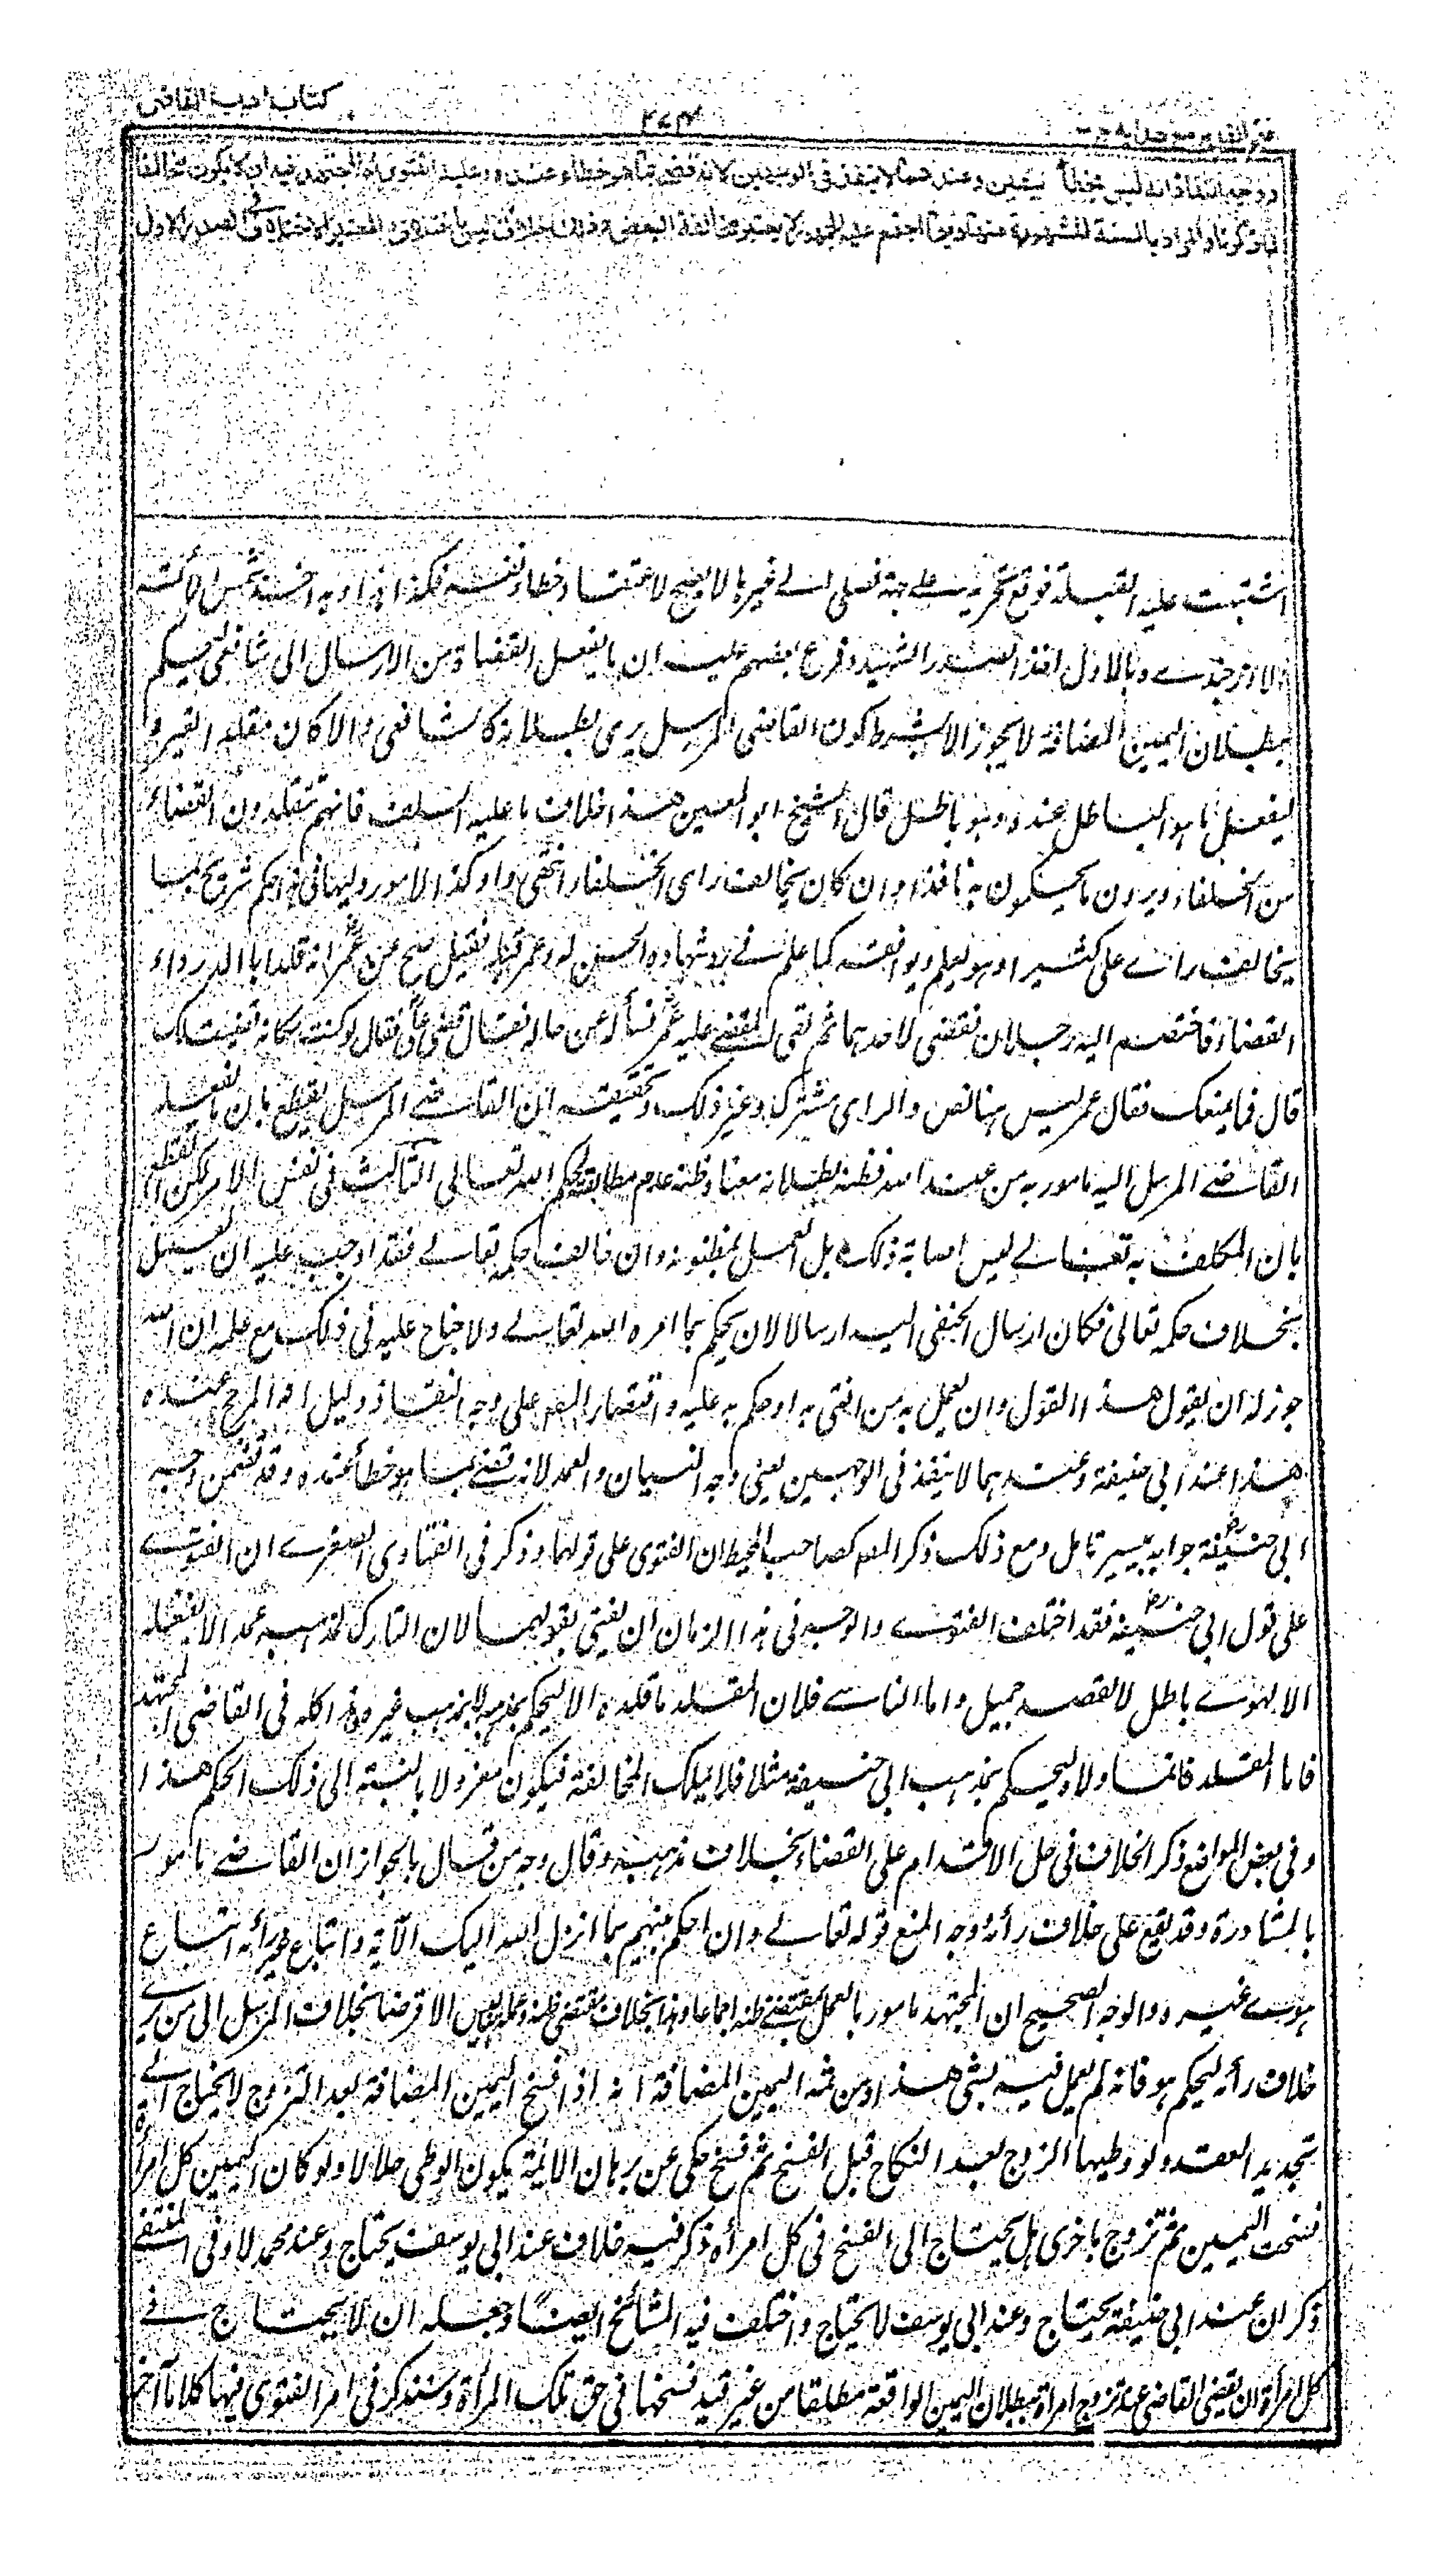 كتاب ادب القاضي
ووجه النفاذ انه ليس بخطأ بيقين وعندهما لا ينفذ في الوجهين لانه قضى بما هو خطاء عنده وعليه الفتوى ثم المجتهد فيه ان لا يكون مخالفا
لما ذكرنا والمراد بالسنة المشهورة منها وفيما اجتمع عليه الجمهور لا يعتبر مخالفة البعض وذلك خلاف وليس باختلاف والمعتبر الاختلاف في الصدر الاول
اشتبهت عليه القبلة فوقع تحريه على جهة فصلى الى غيرها لا يصح لاعتقاده خطاء نفسه فكذا هذا وبه اخذ شمس الائمة
الاوزجندي وبالاول اخذ الصدر الشهيد وفرع بعضهم عليه ان ما يفعل القضاة من الارسال الى شافعي ليحكم
ببطلان اليمين المضافة لا يجوز الا بشرط كون القاضي المرسل يرى بطلانه كالشافعي والا كان مقلده الغير و
ليفعل ما هو الباطل عنده وهو باطل قال الشيخ ابو المعين هذا خلاف ما عليه السلف فانهم يتقلدون القضاء
من الخلفاء ويرون ما يحكمون به نافذا وان كان يخالف راى الخلفاء انتهى وكذا الامور وليها في حكم شريح بما
يخالف راى على كثير او هو ليعلم ويوافقه كما علم في رد شهادة الحسن له وعمر قبله فقيل صح عن عمر انه قلد ابا الدرداء
القضاء فاختصم اليه رجلان فقضى لاحدهما ثم لقى المقضي عليه عمر فسأله عن حاله فقال قضى علي فقال لو كنت مكانه قضيت لك
قال فما يمنعك فقال عمر ليس هنا نص والراى مشترك وغير ذلك وتحقيقه ان القاضي المرسل يقطع بان ما يفعله
القاضي المرسل اليه مامور به من عند الله فظنه بطلانه معناه ظنه عدم مطابقته لحكم الله تعالى الثابت في نفس الامر لكن القطع
بان المكلف به تعالى ليس اصابة ذلك بل العمل بمظنونه وان خالف حكمه تعالى فقد اوجب عليه ان يعمل
بخلاف حكمه تعالى فكان ارسال الحنفي اليه ارسالا لان يحكم بما امره الله تعالى ولا جناح عليه في ذلك مع علمه ان الله
جوز له ان يقول هذا القول وان يعمل به من افتى به او حكم به عليه واقتصار المص على وجه النفاذ دليل انه المرجح عنده
هذا عند ابي حنيفة وعندهما لا ينفذ في الوجهين يعني وجه النسيان والعمد لانه قضى بما هو خطأ عنده وقد تضمن وجه
ابي حنيفة جوابه بيسير تامل ومع ذلك ذكر المص كصاحب المحيط ان الفتوى على قولهما وذكر في الفتاوى الصغرى ان الفتوى
على قول ابي حنيفة فقد اختلف الفتوى والوجه في هذا الزمان ان يفتى بقولهما لان التارك لمذهبه عمدا لا يفعله
الا لهوى باطل لا لقصد جميل واما الناسي فلان المقلد ما قلده الا ليحكم بمذهبه لا بمذهب غيره هذا كله في القاضي المجتهد
فاما المقلد فانما ولاه ليحكم بمذهب ابي حنيفة مثلا فلا يملك المخالفة فيكون معزولا بالنسبة الى ذلك الحكم هذا
وفي بعض المواضع ذكر الخلاف في حل الاقدام على القضاء بخلاف مذهبه وقال وجه من قال بالجواز ان القاضي مامور
بالمشاورة وقد يقع على خلاف رأيه ووجه المنع قوله تعالى وان احكم بينهم بما انزل الله اليك الآية واتباع غير رأيه اتباع
هوى غيره والوجه الصحيح ان المجتهد مامور بالعمل بمقتضى ظنه اجماعا وهذا بخلاف مقتضى ظنه وعمله ليس الا قرضا بخلاف المرسل الى من يرى
خلاف رأيه ليحكم هو فانه لم يعمل فيه بشئ هذا ومن ثمه اليمين المضافة انه اذا فسخ اليمين المضافة بعد التزوج لا يحتاج الى
تجديد العقد ولو وطيها الزوج بعد النكاح قبل الفسخ ثم فسخ حكى عن برهان الائمة يكون الوطى حلالا ولو كان اليمين كل امرأة
فسخت اليمين ثم تزوج باخرى هل يحتاج الى الفسخ في كل امرأة ذكر فيه خلاف عند ابي يوسف يحتاج وعند محمد لا وفي المنتقى
ذكر ان عند ابي حنيفة يحتاج وعند ابي يوسف لا يحتاج واختلف فيه المشائخ ايضا وجعله ان لا يحتاج في
كل امرأة ان يقضي القاضي عند تزوج امرأة ببطلان اليمين الواقعة مطلقا من غير قيد فسخها في حق تلك المرأة وسنذكر في امر الفتوى فيها كلاما آخر